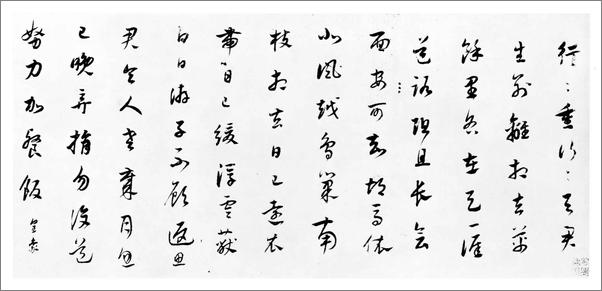 行〻重行〻与君
生别離相去萬
餘里各在天一涯
道路阻且長會
面安可知胡馬依
北風越鳥巢南
枝相去日已遠衣
帶日已緩浮雲蔽
白日游子不顧返思
君令人老歲月忽
已晚弃捐勿復道
努力加餐飯